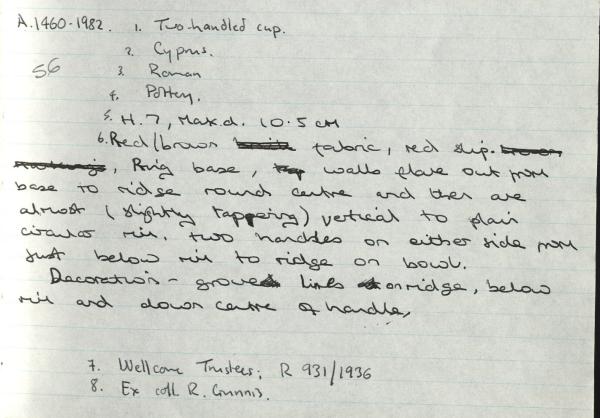 A.1460-1982. 1. Two-handled cup.
2. Cyprus.
56
3. Roman
4. Pottery.
5. H. 7, Max.d. 10.5 cm
6. Red/brown fabric, red slip.
, Ring base, walls flare out from
base to ridge round centre and then are
almost (slightly tappering) vertical to plain
circular rim. two handles on either side from
just below rim to ridge on bowl.
Decoration - groved lines on ridge, below
rim and down centre of handle,
7. Wellcome Trustees; R 931/1936
8. Ex coll R. Gunnis.